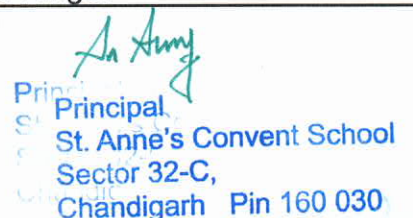 Principal
St. Anne's Convent School
Sector 32-C,
Chandigarh Pin 160 030